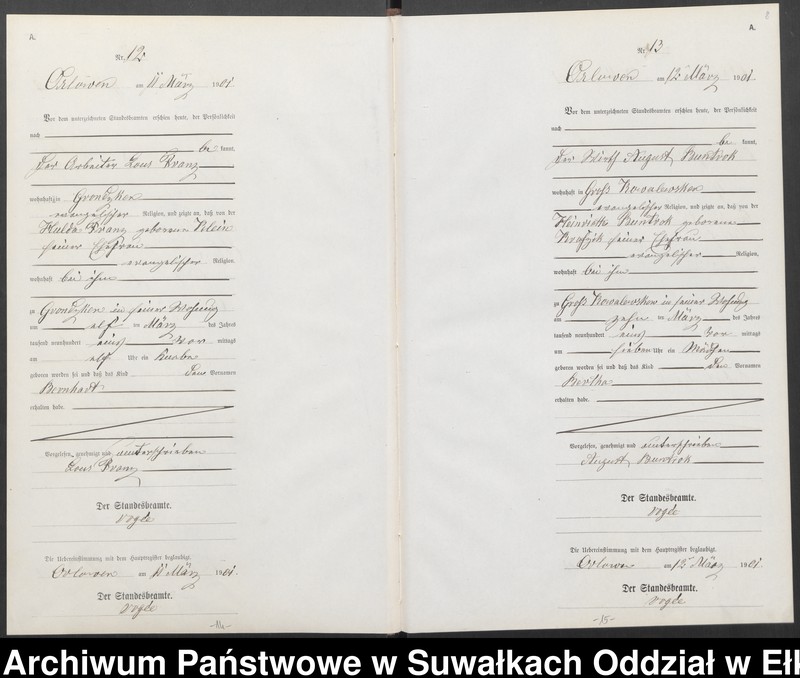 A.
Nr. 12
Orlowen am 11 März 1901.
Vor dem unterzeichneten Standesbeamten erschien heute, der Persönlichkeit
nach
be kannt,
der Arbeiter Franz
wohnhaft in Grondzken
evangelischer Religion, und zeigte an, daß von der
Hulda Franz geborenen Klein
seiner Ehefrau
evangelischer Religion,
wohnhaft bei ihm
zu Grondzken in seiner Wohnung
am elf ten März des Jahres
tausend neunhundert eins vor mittags
um elf Uhr ein Knabe
geboren worden sei und daß das Kind den Vornamen
Bernhard
erhalten habe.
Vorgelesen, genehmigt und unterschrieben
Franz
Der Standesbeamte.
Vogde
Die Uebereinstimmung mit dem Hauptregister beglaubigt.
Orlowen am 11 März 1901.
Der Standesbeamte.
Vogde
-14-
8
A.
Nr. 13
Orlowen am 12 März 1901.
Vor dem unterzeichneten Standesbeamten erschien heute, der Persönlichkeit
nach
be kannt,
der Wirth August Buntrok
wohnhaft in Groß Kowalewsken
evangelischer Religion, und zeigte an, daß von der
Heinriette Buntrok geborenen
seiner Ehefrau
evangelischer Religion,
wohnhaft bei ihm
zu Groß Kowalewsken in seiner Wohnung
am zehn ten März des Jahres
tausend neunhundert eins vor mittags
um sieben Uhr ein Mädchen
geboren worden sei und daß das Kind den Vornamen
Bertha
erhalten habe.
Vorgelesen, genehmigt und unterschrieben
August Buntrok
Der Standesbeamte.
Vogde
Die Uebereinstimmung mit dem Hauptregister beglaubigt.
Orlowen am 12 März 1901.
Der Standesbeamte.
Vogde
-15-
Archiwum Państwowe w Suwałkach Oddział w Ełk